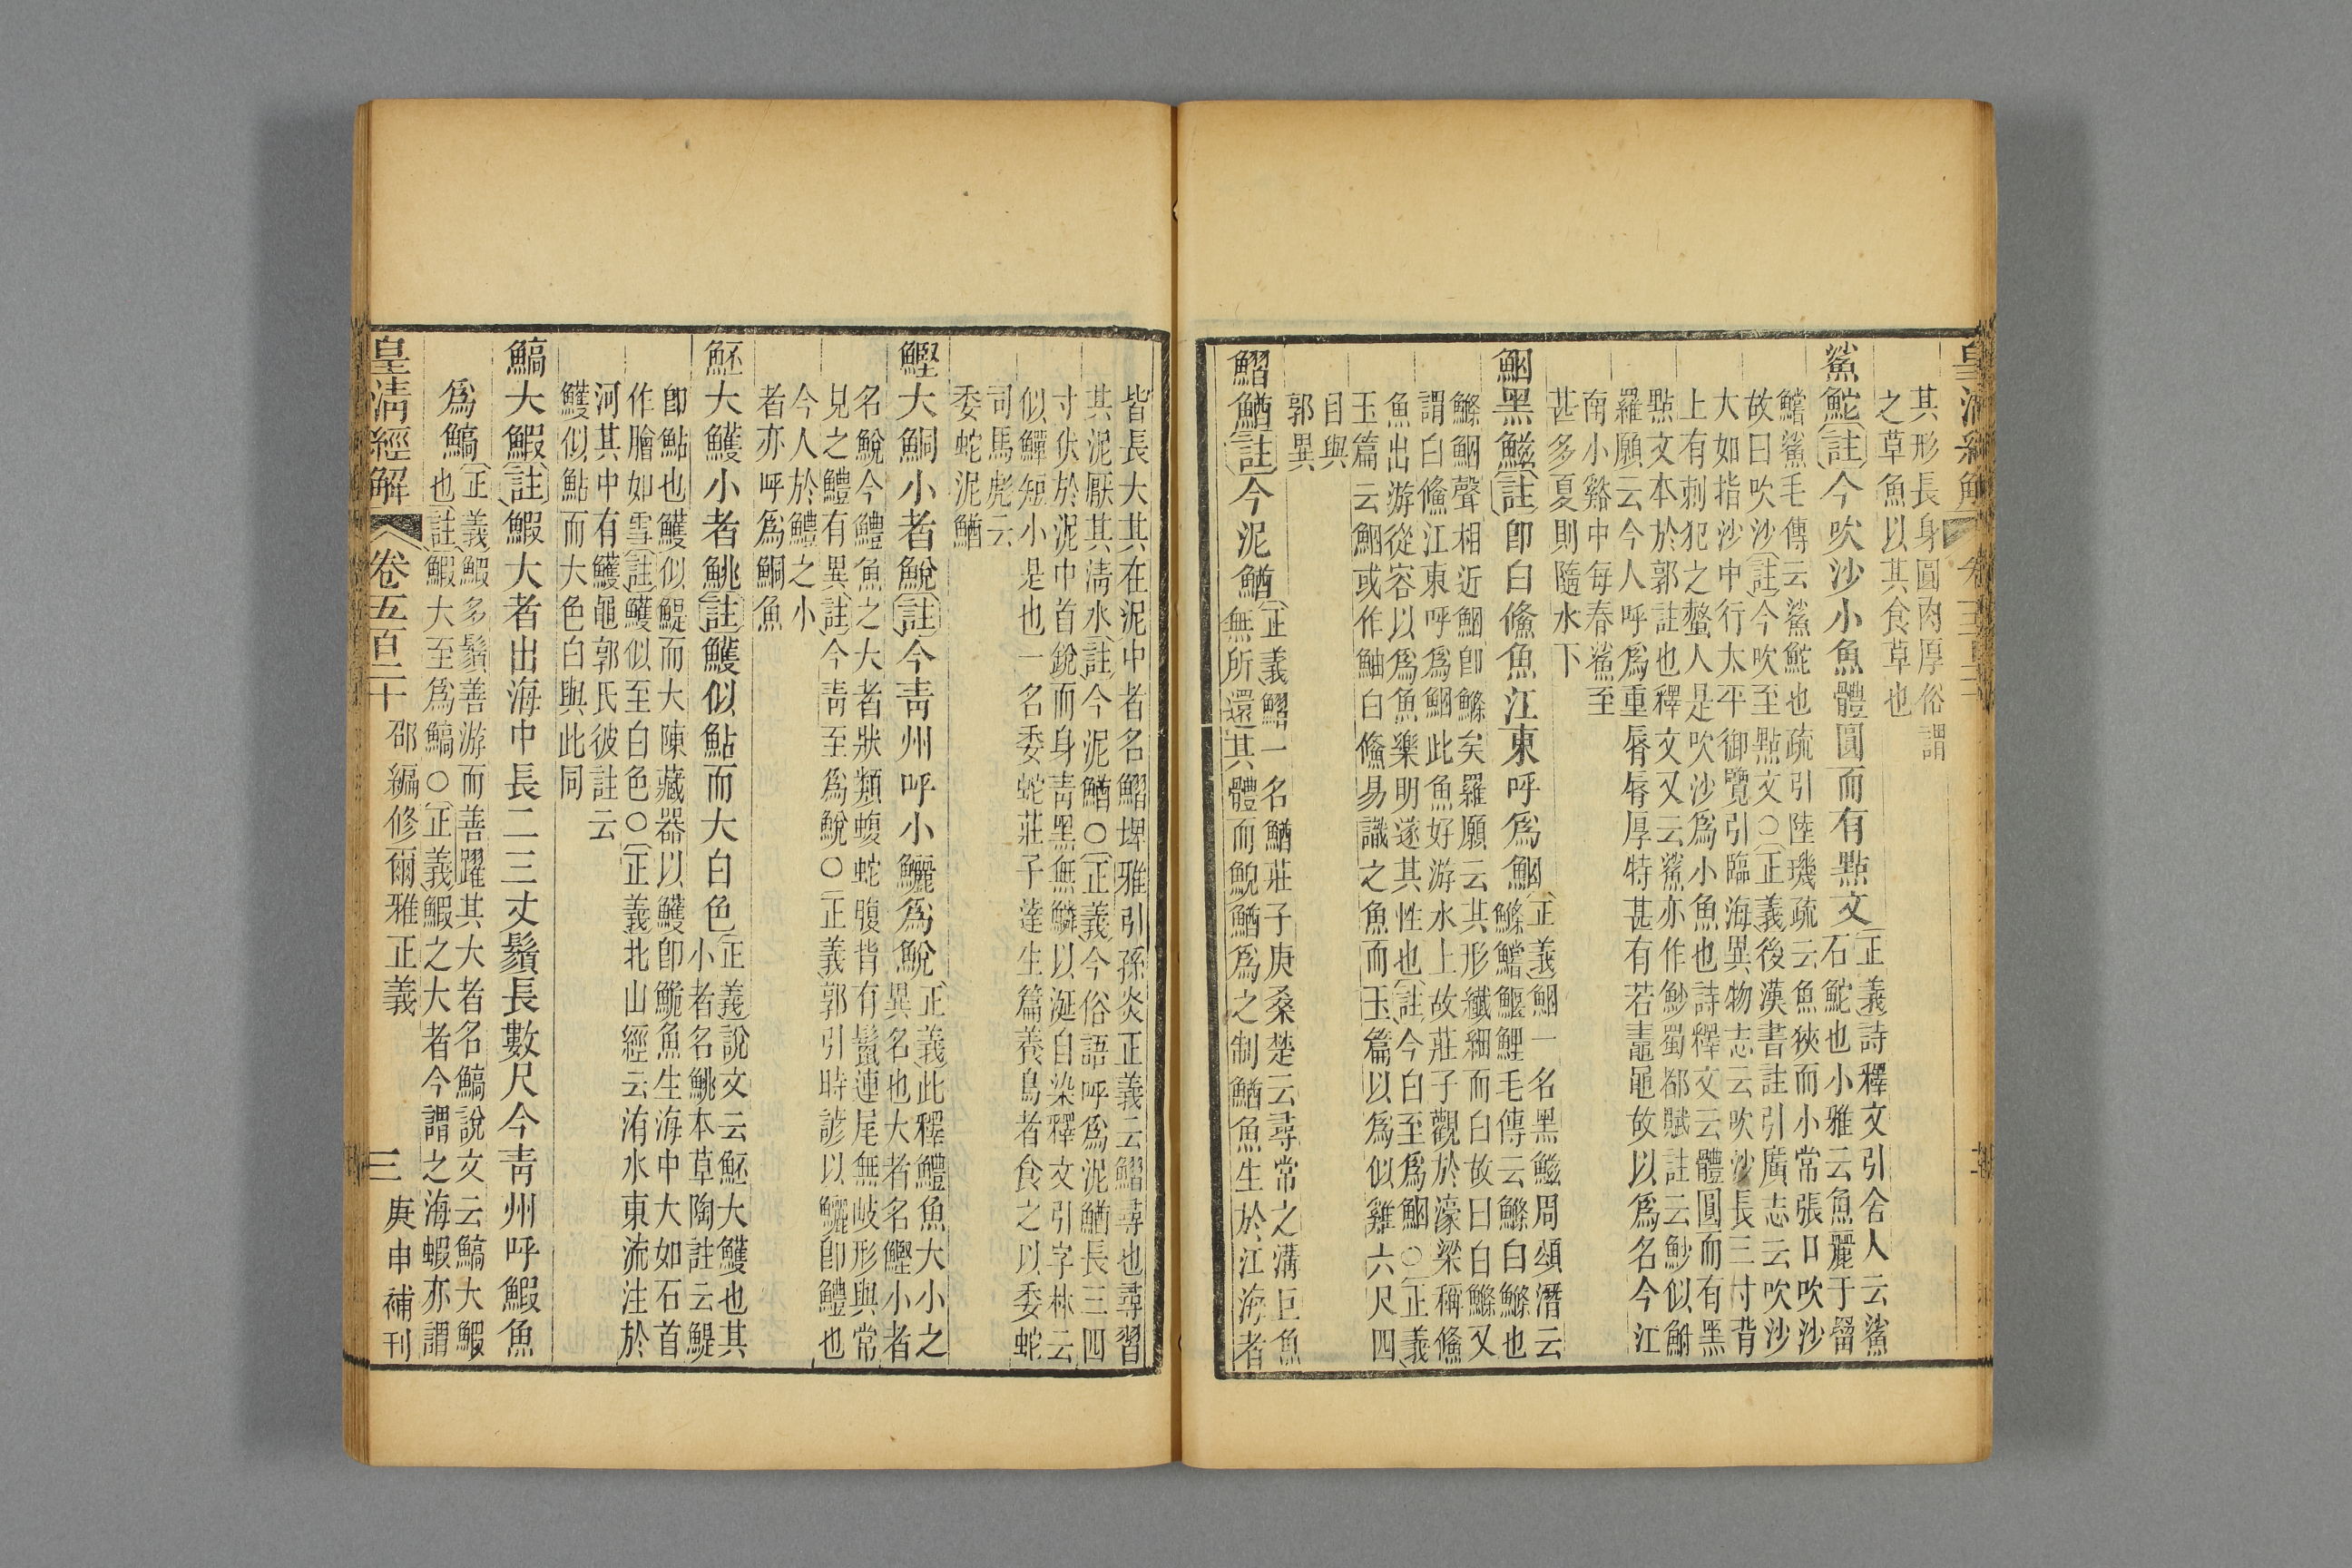 其形長身圓肉厚俗謂
之草魚以其食草也
鯊鮀〔註〕今吹沙小魚體圓而有點文〔正義〕詩釋文引舍人云鯊
石鮀也小雅云魚麗于罶
鱨鯊毛傳云鯊鮀也疏引陸璣疏云魚狹而小常張口吹沙
故曰吹沙〔註〕今吹至點文○〔正義〕後漢書註引廣志云吹沙
大如指沙中行太平御覽引臨海異物志云吹沙長三寸背
上有刺犯之螫人是吹沙爲小魚也詩釋文云體圓而有黑
點文本於郭註也釋文又云鯊亦作魦蜀都賦註云魦似鮒
羅願云今人呼爲重脣脣厚特甚有若鼃黽故以爲名今江
南小谿中每春鯊至
甚多夏則隨水下
鮂黑鰦〔註〕卽白鯈魚江東呼爲鮂〔正義〕鮂一名黑鰦周頌潛云
鰷鱨鰋鯉毛傳云鰷白鰷也
鰷鮂聲相近鮂卽鰷矣羅願云其形纖細而白故曰白鰷又
謂白鯈江東呼爲鮂此魚好游水上故莊子觀於濠梁稱鯈
魚出游從容以爲魚樂明遂其性也〔註〕今白至爲鮂○〔正義〕
玉篇云鮂或作鮋白鯈易識之魚而玉篇以爲似雞六尺四
目與
郭異
鰼鰌〔註〕今泥鰌〔正義〕鰼一名鰌莊子庚桑楚云尋常之溝巨魚
無所還其體而鯢鰌爲之制鰌魚生於江海者
皆長大其在泥中者名鰼埤雅引孫炎正義云鰼尋也尋習
其泥厭其淸水〔註〕今泥鰌○〔正義〕今俗語呼爲泥鰌長三四
寸伏於泥中首銳而身靑黑無鱗以涎自染釋文引字林云
似鱓短小是也一名委蛇莊子達生篇養鳥者食之以委蛇
司馬彪云
委蛇泥鰌
鰹大鮦小者鮵〔註〕今靑州呼小鱺爲鮵〔正義〕此釋鱧魚大小之
異名也大者名鰹小者
名鮵今鱧魚之大者狀類蝮蛇腹背有鬣連尾無岐形與常
見之鱧有異〔註〕今靑至爲鮵○〔正義〕郭引時諺以鱺卽鱧也
今人於鱧之小
者亦呼爲鮦魚
魾大鱯小者鮡〔註〕鱯似鮎而大白色〔正義〕說文云魾大鱯也其
小者名鮡本草陶註云鯷
卽鮎也鱯似鯷而大陳藏器以鱯卽鮠魚生海中大如石首
作膾如雪〔註〕鱯似至白色○〔正義〕北山經云洧水東流注於
河其中有鱯黽郭氏彼註云
鱯似鮎而大色白與此同
鰝大鰕〔註〕鰕大者出海中長二三丈鬚長數尺今靑州呼鰕魚
爲鰝〔正義〕鰕多鬚善游而善躍其大者名鰝說文云鰝大鰕
也〔註〕鰕大至爲鰝○〔正義〕鰕之大者今謂之海蝦亦謂
皇淸經解 卷五百二十 邵編修爾雅正義 三 庚申補刊